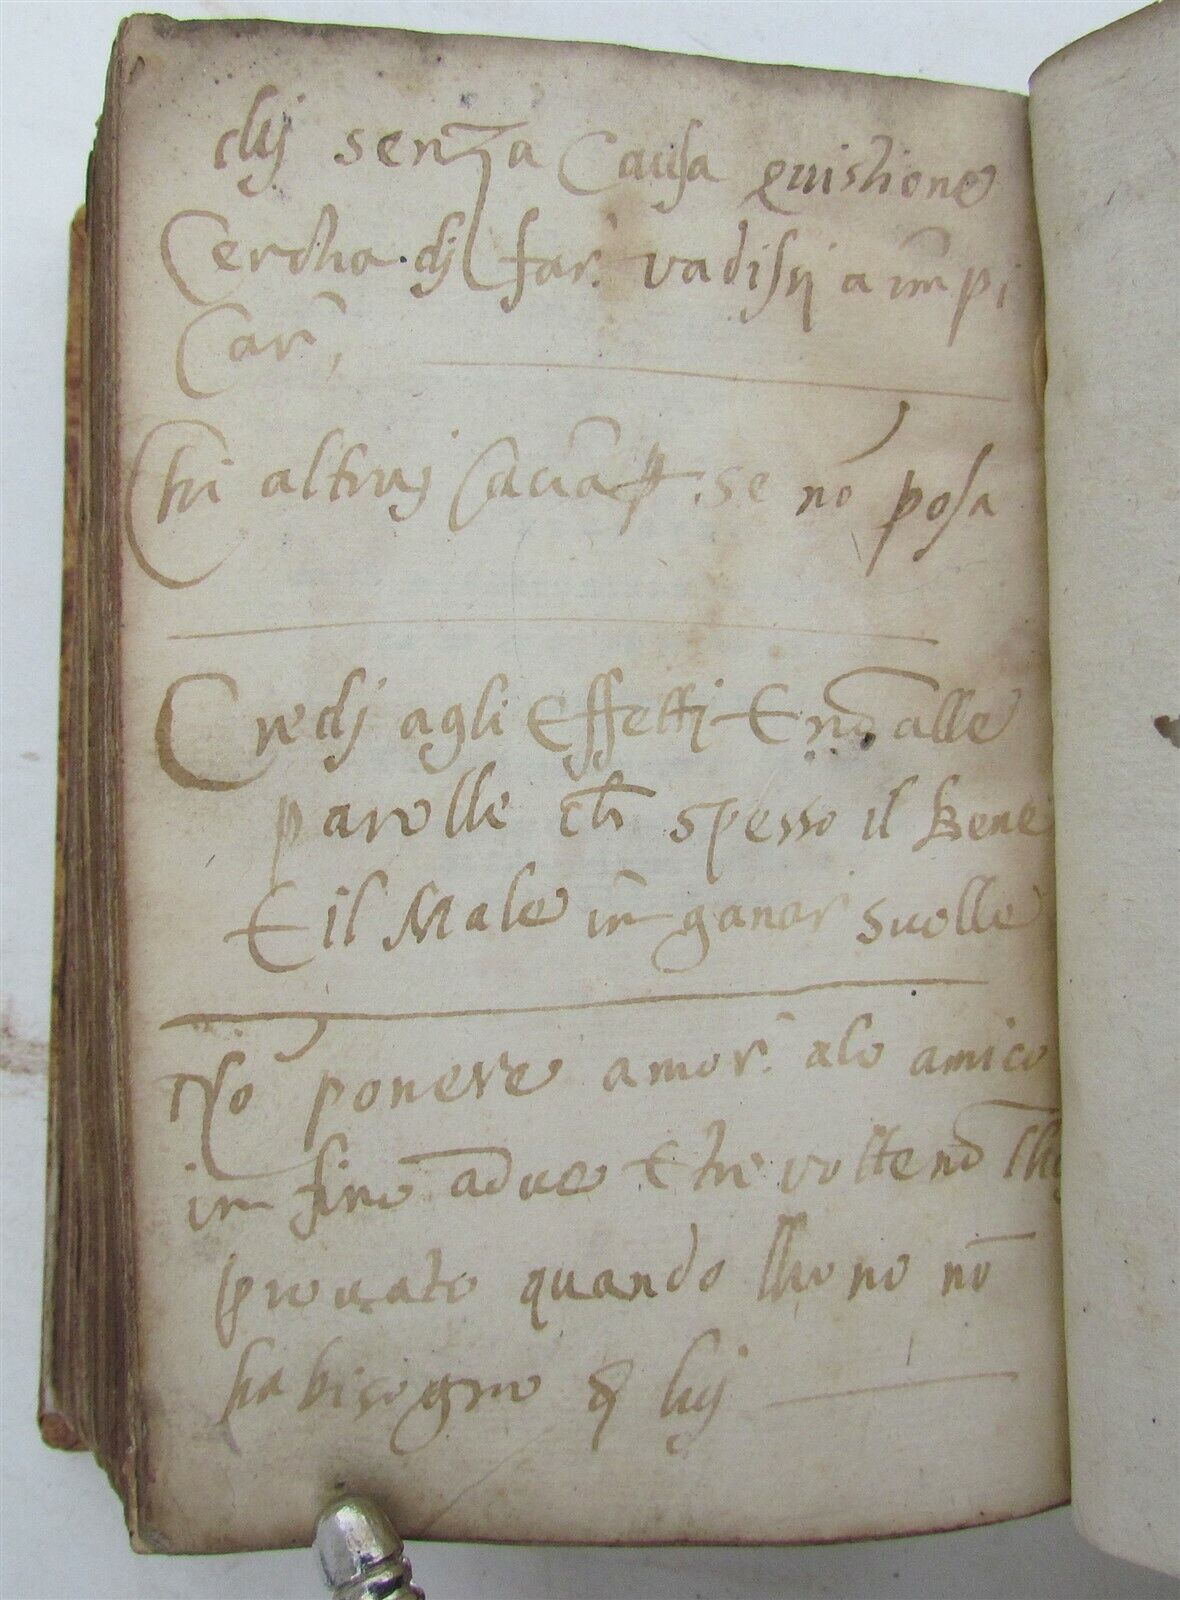 chj senza Causa quistione
Cercha dj far vadisj a im̃pi
Car̃,
Chi altruj Cacia se nõ posa
Credj agli Effettj E nõ alle
parolle ch̃ spesso il Bene
E il Male iñ ganar suolle
Nõ ponere amor alo amico
im fino adue E tre volte nõ lhaj
provato quando lhono nõ
ha bisogno di luj